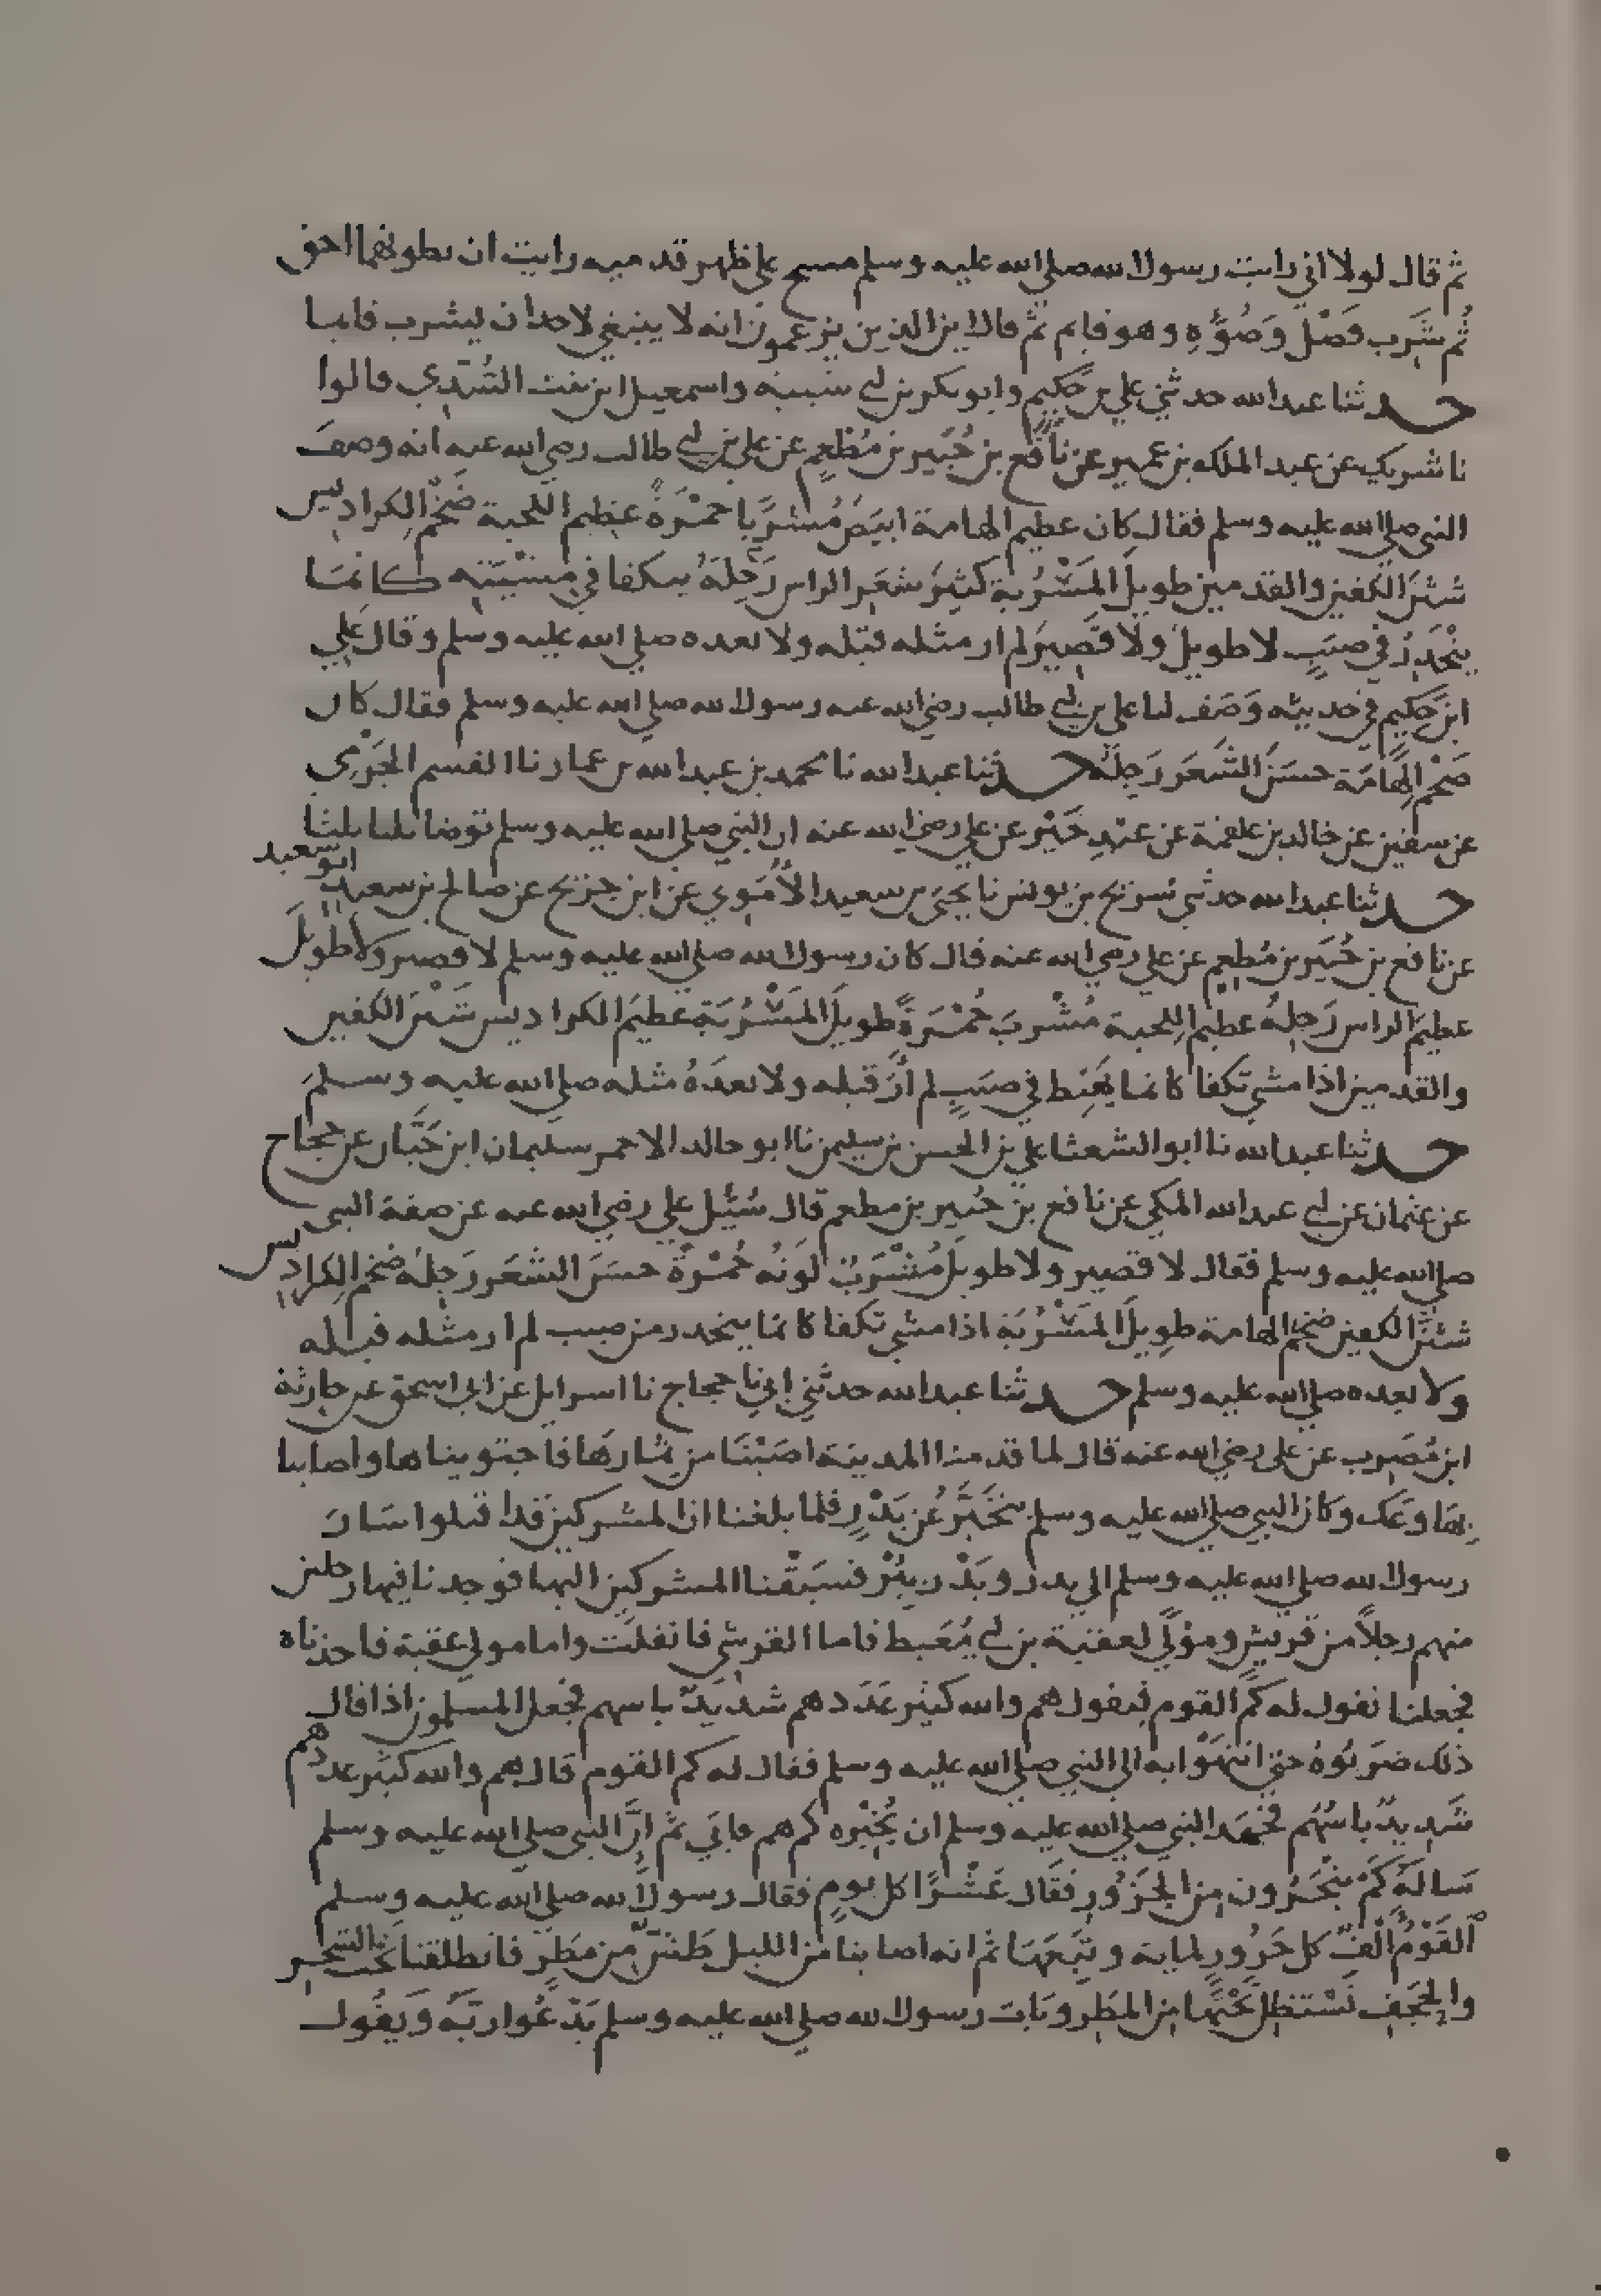 ثم قال لولا اني رايت رسول الله صلي الله عليه وسلم مسح علي ظهر قدميه رايت ان بطونهما احق
ثُم شَرِب فَضْل وَضُوّهِ وهو قايم ثم قال اين الذين يزعمون انه لا ينبغي لاحد ان يشرب قايما
حدثنا عبد الله حدثني علي بن حَكيم وابو بكر بن ابي شيبة واسمعيل ابن بنت السُّدِّي قالوا
نا شريك عن عبد الملك بن عمير عن نافع بن جُبَير بن مُطْعِم عن علي بن ابي طالب رضي الله عنه انه وصفَ
النبي صلي الله عليه وسلم فقال كان عظيم الهامة ابيَضَ مُشرَبًا حمْرَةً عظيم اللحية ضَخْم الكراديس
شَثْنَ الكفين والقدمين طويلَ المَسْرُبة كثيرَ شعَرِ الراس رَجِلَهُ يتكفا في مِشْيَتِه كانما
ينْحَدِرُ في صبَبٍ لا طويلٌ ولا قَصِيرٌ لم ار مثله قبله ولا بعده صلي الله عليه وسلم وقال علي
ابن حَكيم في حديثه وَصَف لنا علي بن ابي طالب رضي الله عنه رسول الله صلي الله عليه وسلم فقال كان
ضَخْم الهامَة حسَنَ الشعَر رَجِلَهُ حدثنا عبد الله نا محمد بن عبد الله بن عمار نا القسم الجَرْمي
عن سفين عن خالد بن علقمة عن عَبْدِ خَيْر عن علي رضي الله عنه ان النبي صلي الله عليه وسلم توضا ثلثا ثلثا
حدثنا عبد الله حدثني سُريج بن يونس نا يحيَى بن سعيد الأُمَوي عن ابن جريج عن صالح بن سعيد ابو سعيد
عن نافع بن جُبَير بن مُطعِم عن علي رضي الله عنه قال كان رسول الله صلي الله عليه وسلم لا قصير ولا طويل
عظيمَ الراس رَجِلَهُ عظيم اللحية مُشْربَ حُمْرَةً طويلَ المَسْرُبَة عظيمَ الكراديس شَثْنَ الكفين
والقدمين اذا مشي تكفا كانما يَهْبِط في صبَبٍ لم أرَ قبله ولا بعدَهُ مثله صلي الله عليه وسلم
حدثنا عبد الله نا ابو الشعثا علي بن الحسن بن سليمن نا ابو خالد الاحمر سليمان ابن حَيَّان عن حجاج
عن عثمان عن ابي عبد الله المكي عن نافع بن جُبير بن مطعم قال سُئِل علي رضي الله عنه عن صفة النبي
صلي الله عليه وسلم فقال لا قصير ولا طويل مُشْرَبٌ لَونُه حُمْرَةً حسنَ الشعَر رَجِلَهُ ضخم الكراديس
شَثْنَ الكفين ضخمَ الهامة طويلَ المَسْرُبَة اذا مشي تكفا كانما ينحدر من صبب لم ار مثله قبله
ولا بعده صلي الله عليه وسلم حدثنا عبد الله حدثني ابي نا حجاج نا اسرايل عن ابي اسحق عن حارثة
ابن مُضَرِب عن علي رضي الله عنه قال لما قدمنا المدينة اصَبْنَا من ثمارهَا فاجتويناها واصابنا
بِهَا وَعَك وكان النبي صلي الله عليه وسلم يتَخَبَّرُ عن بَدْرٍ فلما بلغنا ان المشركين قد اقبلوا سَارَ
رسول الله صلي الله عليه وسلم الي بدر وبَدْر بِئْرٌ فسَبَقْنا المشركين اليها فوجدنا فيها رجلين
منهم رجلًا من قريش ومَوْلًي لعقبة بن ابي مُعَيط فاما القرشي فانفلَت واما مولي عقبة فاخذناه
فجعلنا نقول له كَمِ القوم فيقول هم والله كثير عَدَدهم شديدٌ باسهم فجعل المسلمون اذا قال
ذلك ضرَبُوهُ حتي انتهَوْا به الي النبي صلي الله عليه وسلم فقال له كم القوم قال هم والله كثير عددهم
شَدِيدٌ باسُهُم فجَهَد النبي صلي الله عليه وسلم ان يُخْبِره كم هم فابي ثم إنَّ النبي صلي الله عليه وسلم
سَالَهُ كَمْ ينْحَرُون مِن الجَزُورِ فقَال عَشْرًا كل يومٍ فقال رسول الله صلي الله عليه وسلم
القَوْمُ أَلْفٌ كل جَزُورٍ لماية وتَبَعِهَا ثم انه اصابنا من الليل طَشٌّ مِن مَطَرٍ فانطلقنا تحت الشجر
والحَجَفِ نَسْتظل تَحْتَهَا مِن المَطَر وبَات رسول الله صلي الله عليه وسلم يَدْعُوا ربَّهُ وَيقُول